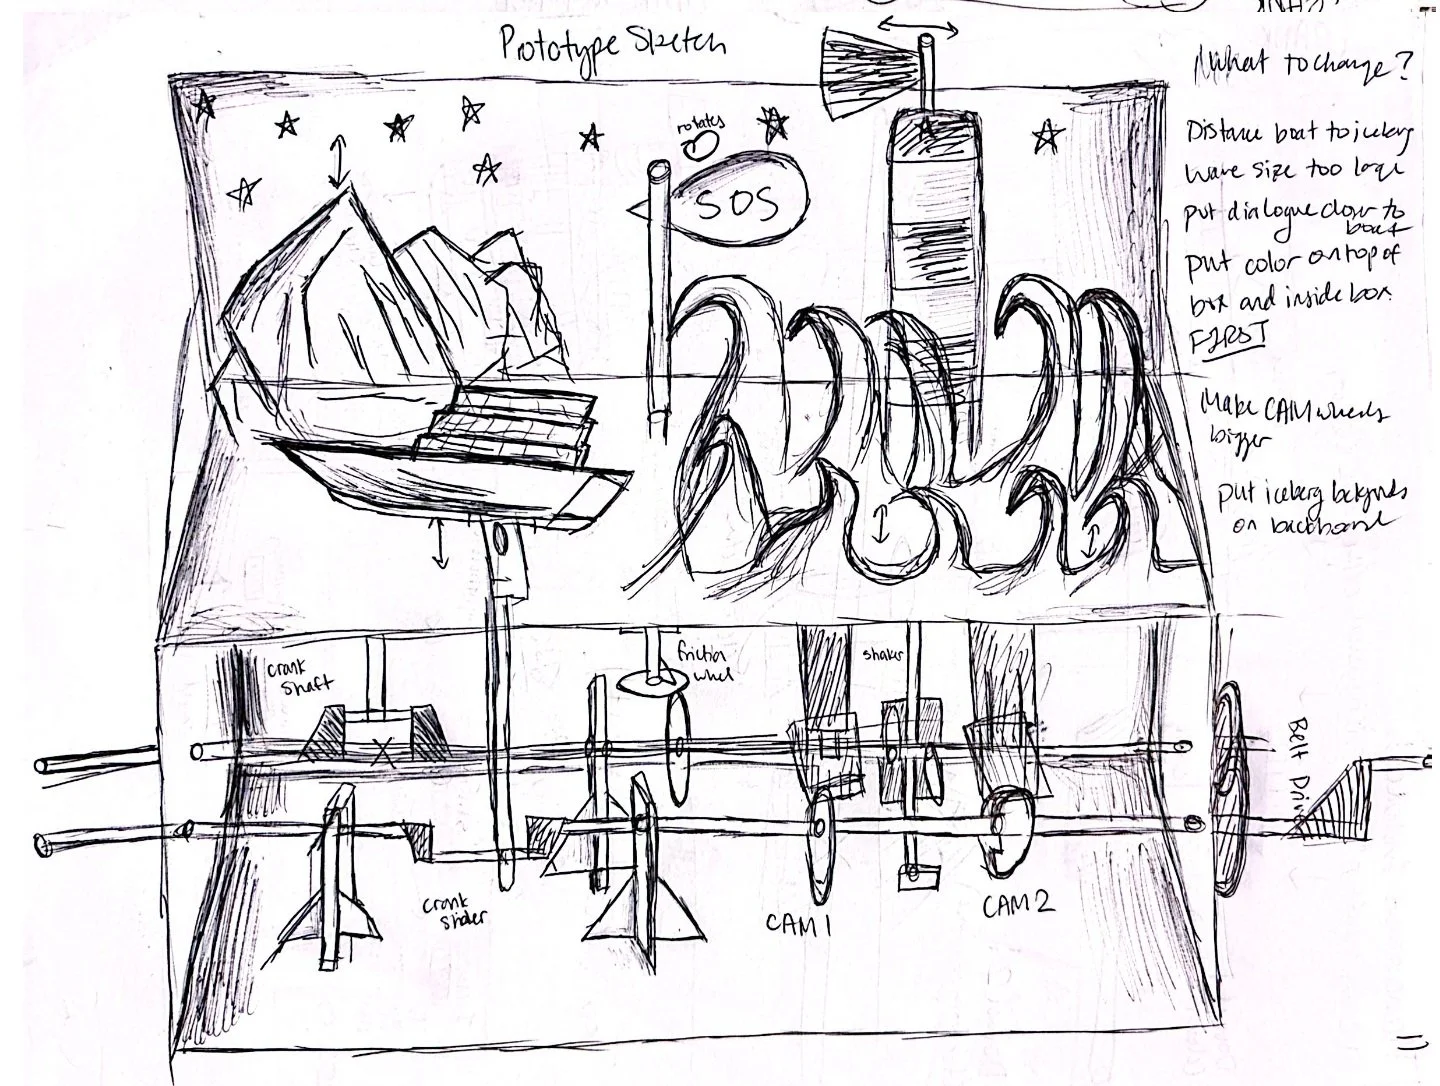 Prototype Sketch
What to change?
Distance boat to iceberg
wave size too large
put dialogue closer to
boat
put color on top of
box and inside box
FIRST
Make CAM wheels
bigger
put iceberg bckgrnds
on backboard
rotates
SOS
crank
shaft
friction
wheel
shaker
Belt Drive
crank
slider
CAM 1
CAM 2